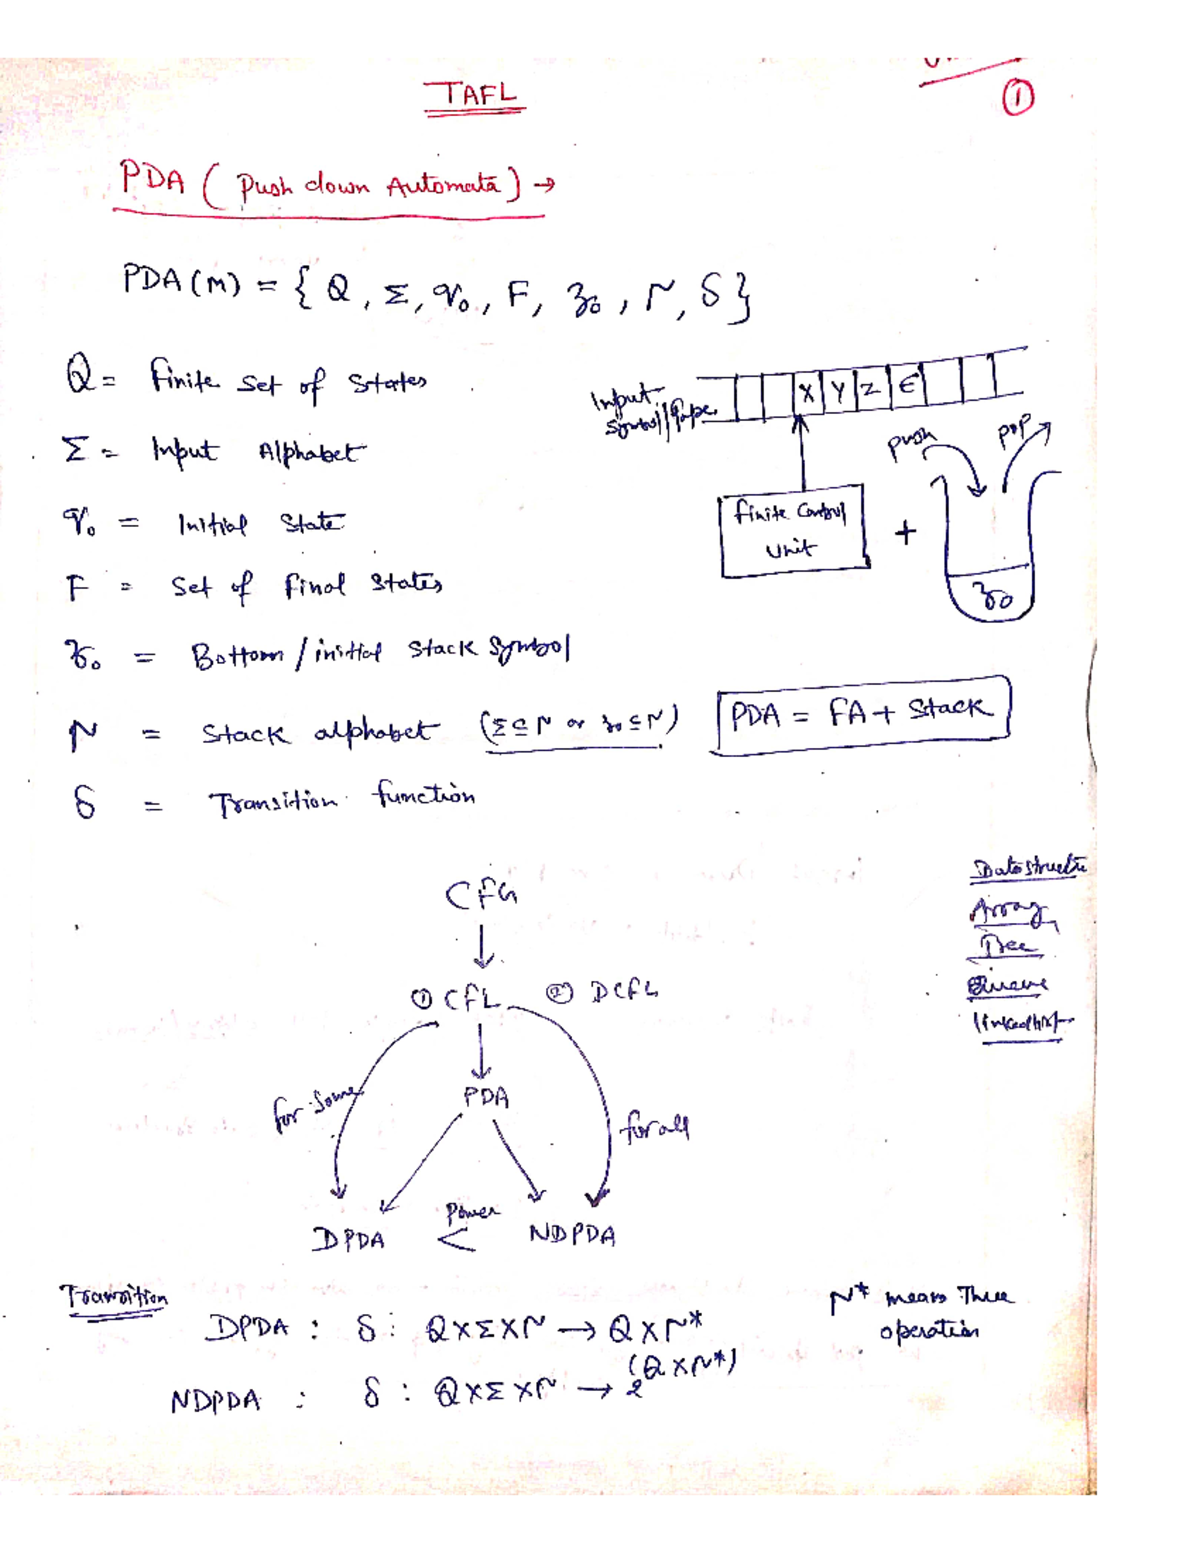 TAFL
①
PDA ( Push down Automata ) →
PDA (M) = { Q , Σ, q₀ , F, z₀ , Γ, δ }
Q = finite set of states
Σ = Input Alphabet
q₀ = Initial State
F = Set of final states
z₀ = Bottom / initial stack symbol
Γ = Stack alphabet (Σ ⊆ Γ or z₀ ⊆ Γ)
δ = Transition function
Input
Symbol/Tape
X Y Z ϵ
push
pop
finite Control
Unit
+
z₀
PDA = FA + Stack
CFG
↓
① CFL ② DCFL
↓
PDA
for some
for all
DPDA < NDPDA
Power
Array
Tree
Queue
linked list
Transition
DPDA : δ : Q X Σ X Γ → Q X Γ*
NDPDA : δ : Q X Σ X Γ → 2^(Q X Γ*)
Γ* means Three
operation